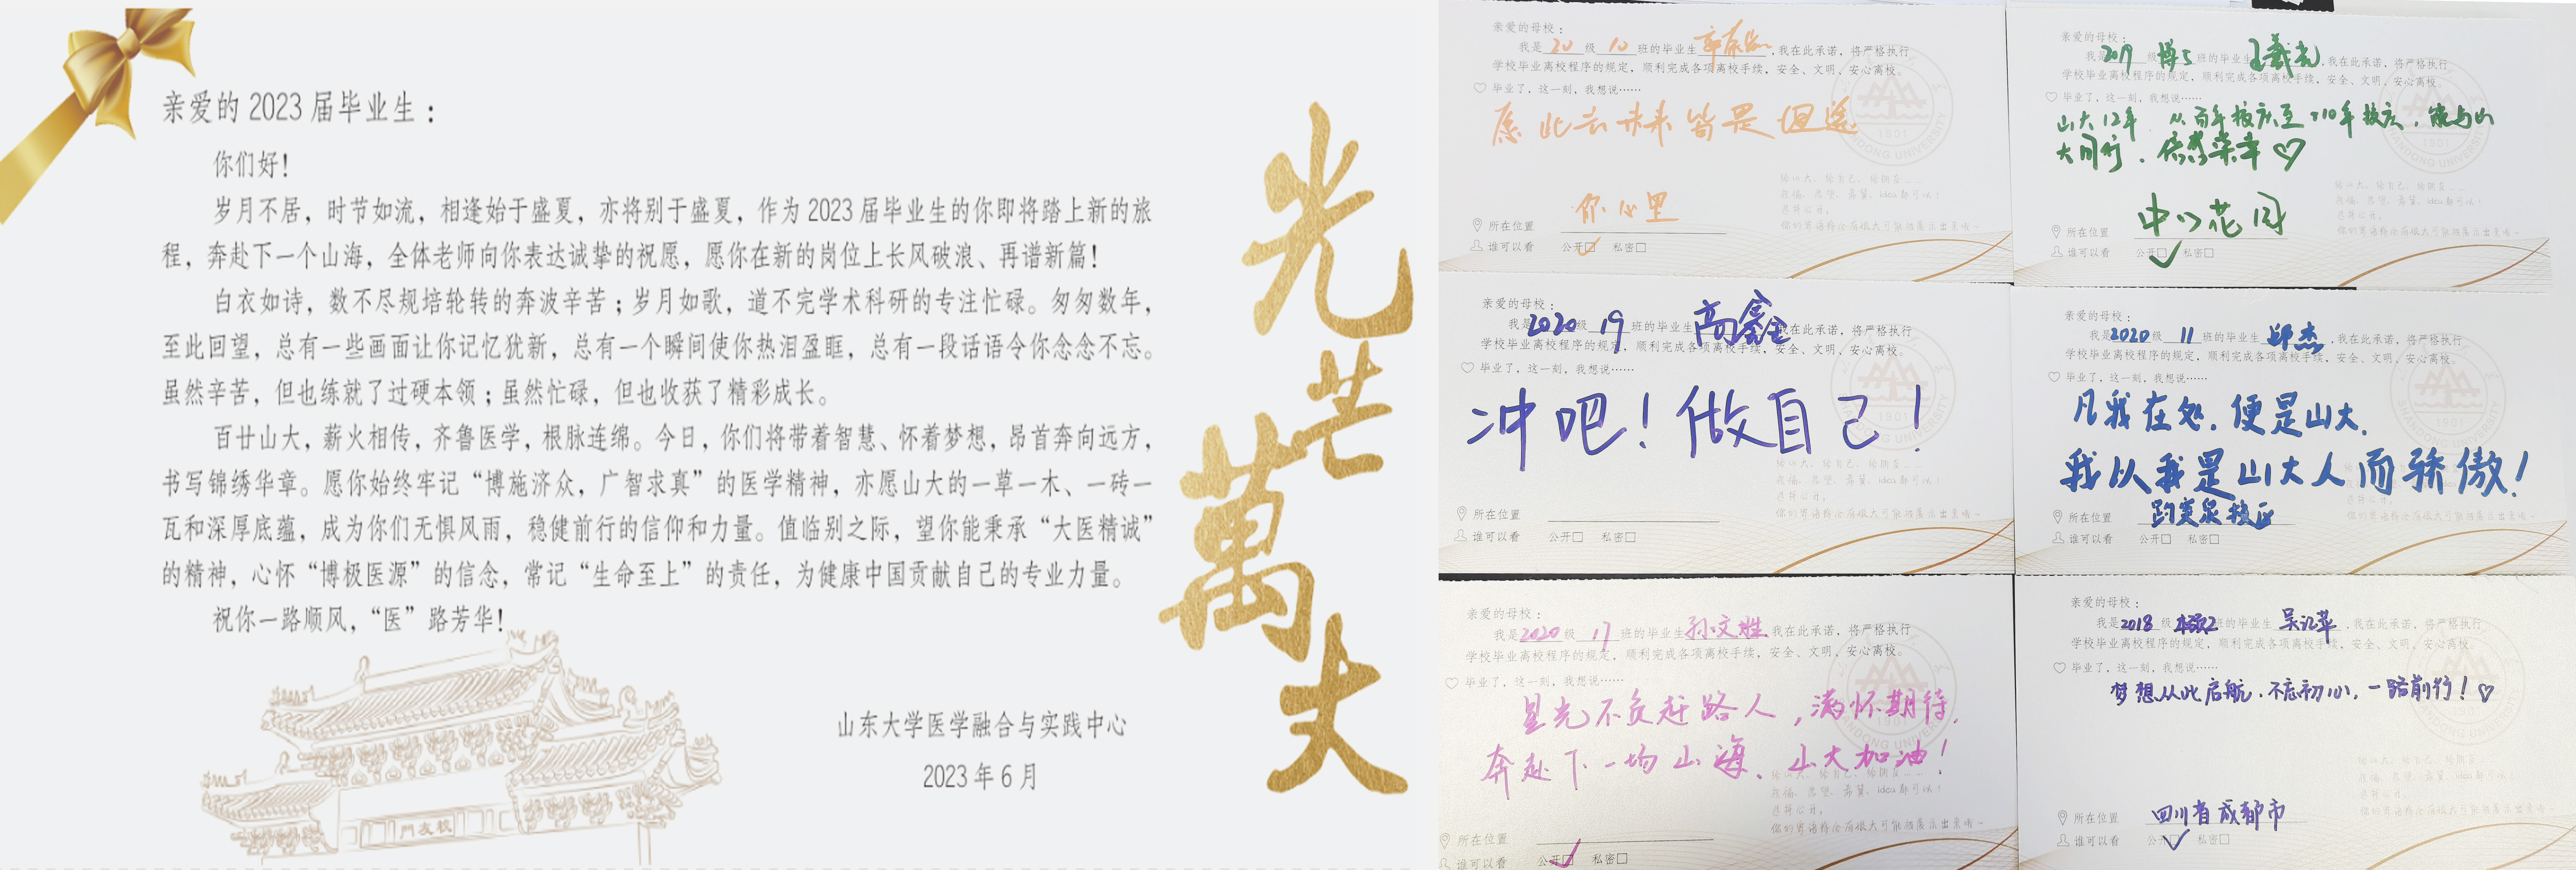 亲爱的 2023 届毕业生：
你们好！
岁月不居，时节如流，相逢始于盛夏，亦将别于盛夏，作为 2023 届毕业生的你即将踏上新的旅
程，奔赴下一个山海，全体老师向你表达诚挚的祝愿，愿你在新的岗位上长风破浪、再谱新篇！
白衣如诗，数不尽规培轮转的奔波辛苦；岁月如歌，道不完学术科研的专注忙碌。匆匆数年，
至此回望，总有一些画面让你记忆犹新，总有一个瞬间使你热泪盈眶，总有一段话语令你念念不忘。
虽然辛苦，但也练就了过硬本领；虽然忙碌，但也收获了精彩成长。
百廿山大，薪火相传，齐鲁医学，根脉连绵。今日，你们将带着智慧、怀着梦想，昂首奔向远方，
书写锦绣华章。愿你始终牢记“博施济众，广智求真”的医学精神，亦愿山大的一草一木、一砖一
瓦和深厚底蕴，成为你们无惧风雨，稳健前行的信仰和力量。值临别之际，望你能秉承“大医精诚”
的精神，心怀“博极医源”的信念，常记“生命至上”的责任，为健康中国贡献自己的专业力量。
祝你一路顺风，“医”路芳华！
山东大学医学融合与实践中心
2023 年 6 月
門友校
光芒萬丈
亲爱的母校：
我是 20 级 10 班的毕业生，我在此承诺，将严格执行
学校毕业离校程序的规定，顺利完成各项离校手续，安全、文明、安心离校。
毕业了，这一刻，我想说……
愿此去未来皆是坦途
给山大、给自己、给朋友……
祝福、愿望、希冀、idea都可以！
选择公开，
你的寄语将会有很大可能被展示出来哦~
所在位置 你心里
谁可以看 公开□ 私密□
亲爱的母校：
我是 2017 级 博5 班的毕业生 王羲光，我在此承诺，将严格执行
学校毕业离校程序的规定，顺利完成各项离校手续，安全、文明、安心离校。
毕业了，这一刻，我想说……
山大12年，从百年校庆至110年校庆，能与山
大同行，倍感荣幸♡
所在位置 中心花园
谁可以看 公开□ 私密□
亲爱的母校：
我是 2020 级 19 班的毕业生 高鑫 我在此承诺，将严格执行
学校毕业离校程序的规定，顺利完成各项离校手续，安全、文明、安心离校。
毕业了，这一刻，我想说……
冲吧！做自己！
所在位置
谁可以看 公开□ 私密□
亲爱的母校：
我是 2020 级 11 班的毕业生 邱杰，我在此承诺，将严格执行
学校毕业离校程序的规定，顺利完成各项离校手续，安全、文明、安心离校。
毕业了，这一刻，我想说……
凡我在处，便是山大。
我以我是山大人而骄傲！
所在位置 趵突泉校区
谁可以看 公开□ 私密□
亲爱的母校：
我是 2020 级 17 班的毕业生 孙文胜 我在此承诺，将严格执行
学校毕业离校程序的规定，顺利完成各项离校手续，安全、文明、安心离校。
毕业了，这一刻，我想说……
星光不负赶路人，满怀期待，
奔赴下一场山海，山大加油！
所在位置
谁可以看 公开□ 私密□
亲爱的母校：
我是 2018 级 班的毕业生，我在此承诺，将严格执行
学校毕业离校程序的规定，顺利完成各项离校手续，安全、文明、安心离校。
毕业了，这一刻，我想说……
梦想从此启航，不忘初心，一路前行！♡
所在位置 四川省成都市
谁可以看 公开□ 私密□